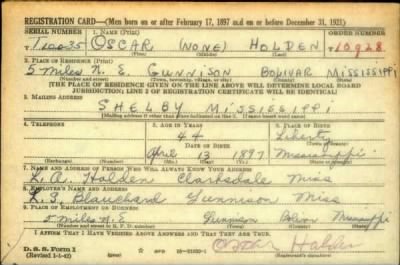 REGISTRATION CARD—(Men born on or after February 17, 1897 and on or before December 31, 1921)
SERIAL NUMBER 1. NAME (Print) ORDER NUMBER
T 10035 OSCAR (NONE) HOLDEN T10928
(First) (Middle) (Last)
2. PLACE OF RESIDENCE (Print)
5 miles N. E. GUNNISON BOLIVAR MISSISSIPPI
(Number and street) (Town, township, village, or city) (County) (State)
[THE PLACE OF RESIDENCE GIVEN ON THE LINE ABOVE WILL DETERMINE LOCAL BOARD
JURISDICTION; LINE 2 OF REGISTRATION CERTIFICATE WILL BE IDENTICAL]
3. MAILING ADDRESS
SHELBY MISSISSIPPI
[Mailing address if other than place indicated on line 2. If same insert word same]
4. TELEPHONE 5. AGE IN YEARS 6. PLACE OF BIRTH
44 Liberty
DATE OF BIRTH (Town or county)
April 13 1897 Mississippi
(Exchange) (Number) (Mo.) (Day) (Yr.) (State or country)
7. NAME AND ADDRESS OF PERSON WHO WILL ALWAYS KNOW YOUR ADDRESS
Holden Clarksdale Miss
8. EMPLOYER'S NAME AND ADDRESS
Blanchard Gunnison Miss
9. PLACE OF EMPLOYMENT OR BUSINESS
5 miles N.E Gunnison Mississippi
(Number and street or R. F. D. number) (Town) (County) (State)
I AFFIRM THAT I HAVE VERIFIED ABOVE ANSWERS AND THAT THEY ARE TRUE.
D. S. S. Form 1
(Revised 1-1-42) Oscar Holden